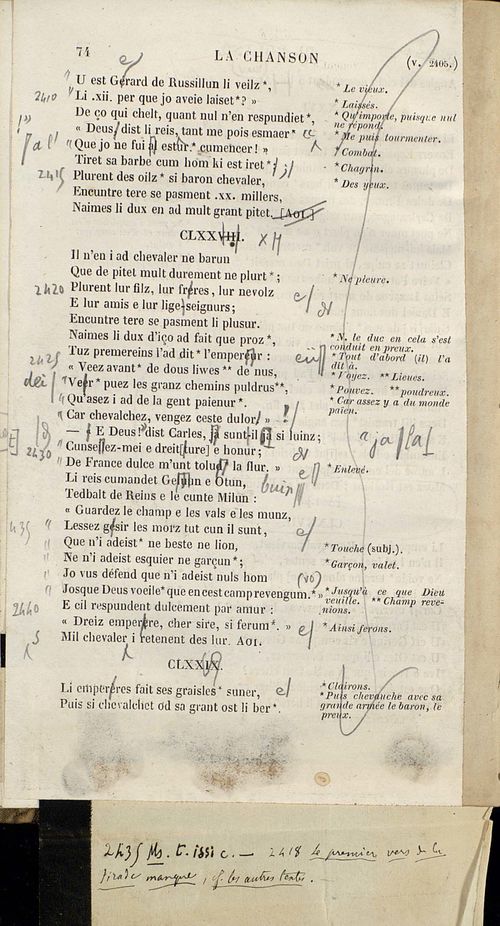 74
LA CHANSON
(v. 2405.)
U est Gérard de Russillun li veilz*,
* Le vieux.
2410
Li .xii. per que jo aveie laiset*? »
* Laissés.
De ço qui chelt, quant nul n'en respundiet*,
* Qu'importe, puisque nul ne répond.
« Deus, dist li reis, tant me pois esmaer*
* Me puis tourmenter.
Que jo ne fui a estur* cumencer! »
* Combat.
Tiret sa barbe cum hom ki est iret*
* Chagrin.
2415
Plurent des oilz* si baron chevaler,
* Des yeux.
Encuntre tere se pasment .xx. millers,
Naimes li dux en ad mult grant pitet. [Aoi.]
CLXXVIII.
XII
Il n'en i ad chevaler ne barun
Que de pitet mult durement ne plurt*;
* Ne pleure.
2420
Plurent lur filz, lur freres, lur nevolz
E lur amis e lur lige seignurs;
Encuntre tere se pasment li plusur.
Naimes li dux d'iço ad fait que proz*,
* N. le duc en cela s'est conduit en preux.
Tuz premereins l'ad dit* l'empereür :
* Tout d'abord (il) l'a dit à.
2425
« Veez avant* de dous liwes** de nus,
* Voyez. ** Lieues.
Veer* puez les granz chemins puldrus**,
* Pouvez. ** poudreux.
Qu'asez i ad de la gent paienur*.
* Car assez y a du monde païen.
Car chevalchez, vengez ceste dulor. »
— E Deus! dist Carles, ja sunt-il ja si luinz;
2430
Cunseilez-mei e dreit[ure] e honur;
De France dulce m'unt tolud* la flur. »
* Enlevé.
Li reis cumandet Gebuun e Otun,
Tedbalt de Reins e le cunte Milun :
« Guardez le champ e les vals e les munz,
435
Lessez gesir les morz tut cun il sunt,
Que n'i adeist* ne beste ne lion,
* Touche (subj.).
Ne n'i adeist esquier ne garçun*;
* Garçon, valet.
Jo vus défend que n'i adeis nuls hom
(vo)
Josque Deus voeile* que en cest camp revengum.** »
* Jusqu'à ce que Dieu veuille. ** Champ revenions.
2440
E cil respundent dulcement par amur :
« Dreiz emperere, cher sire, si ferum*. »
* Ainsi ferons.
Mil chevaler i retenent des lur. Aoi.
CLXXIX.
Li empereres fait ses graisles* suner,
* Clairons.
Puis si chevalchet od sa grant ost li ber*.
* Puis chevauche avec sa grande armée le baron, le preux.
2435 Ms. t. issi c. — 2418 Le premier vers de la
tirade manque, cf. les autres textes.